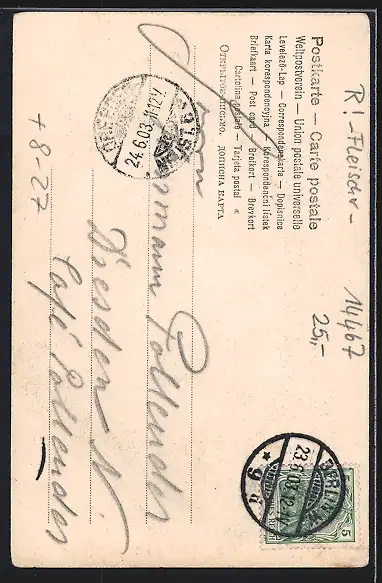 Postkarte – Carte postale
Weltpostverein – Union postale universelle
Levelező-Lap – Correspondenzkarte – Dopisnice
Karta korespondencyjna – Korespondenční lístek
Briefkaart – Post card – Brefkort – Brevkort
Cartolina postale – Tarjeta postal
ОТКРЫТОЕ ПИСЬМО. ДОПИСНА КАРТА
R!-Fleischr-
14467
25,-
5
BERLIN
23.6.03.12-1
* 9 a
24.6.03.11-12V.
Herrn
Hermann Pollender
Dresden N.
Café Pollender
+ 8-27